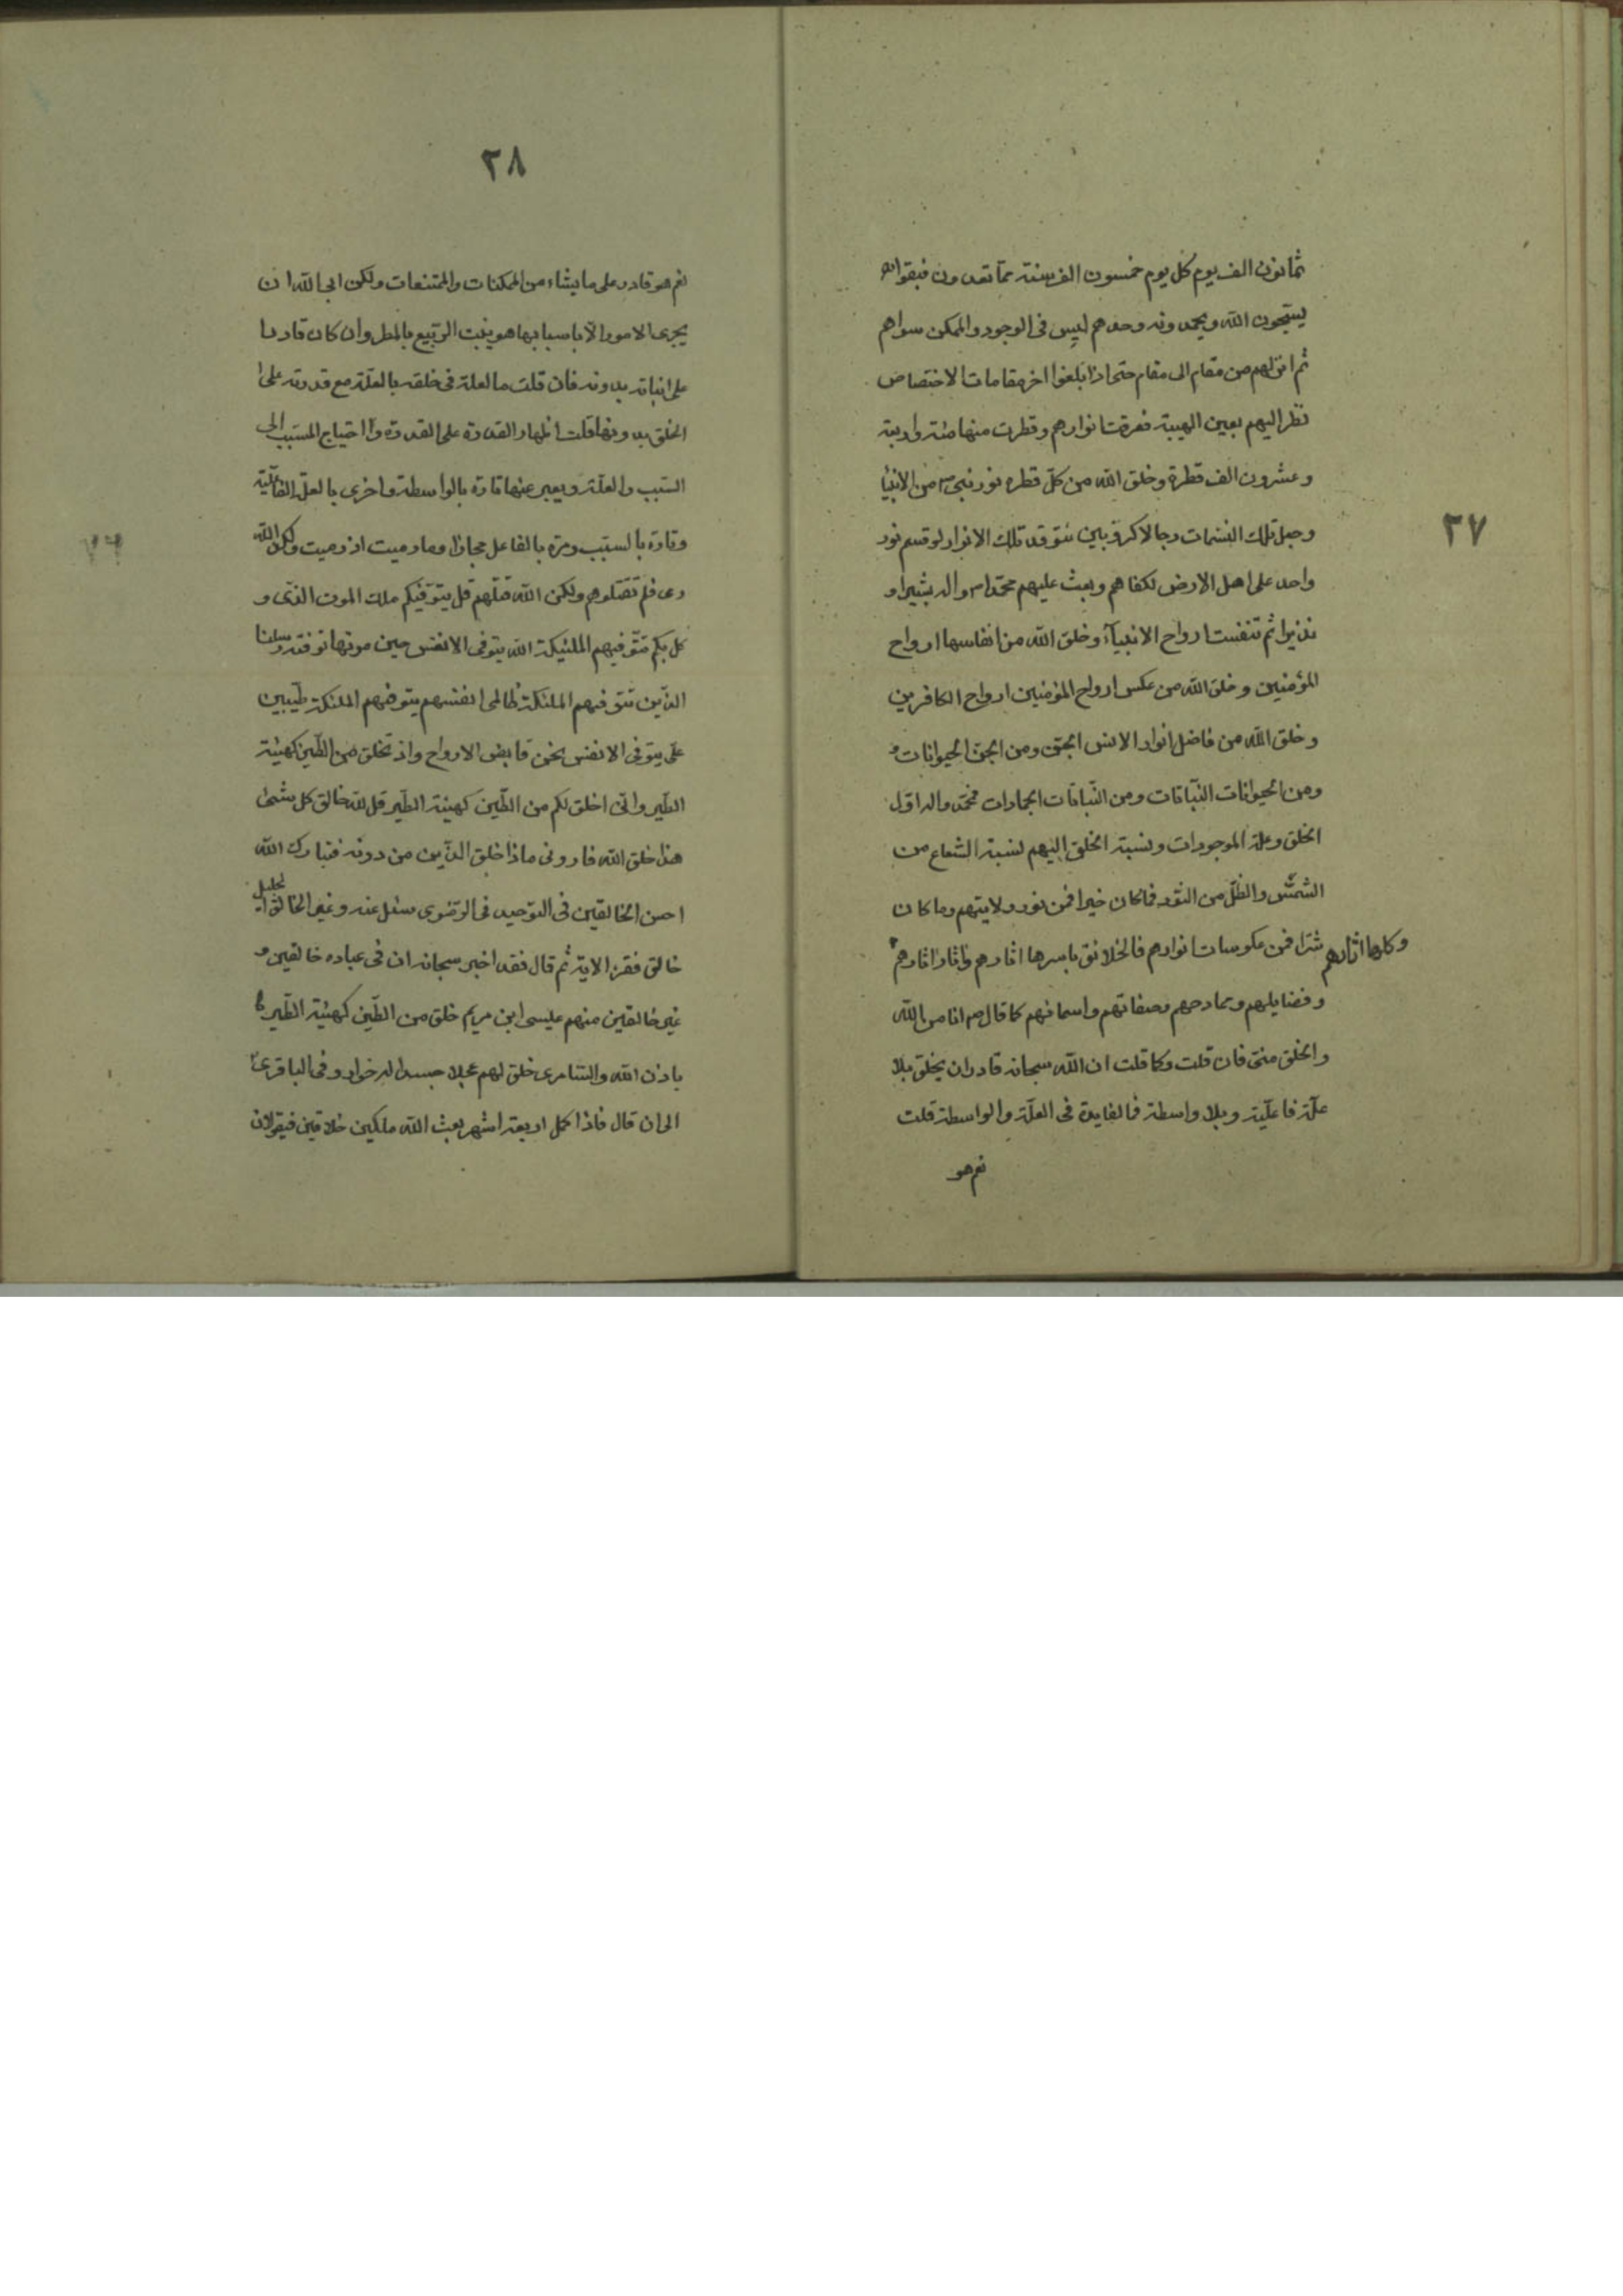 ٢٧
ثمانون الف يوم كل يوم خمسون الف سنة مما تعدون فبقوا
يسبحون الله ويحمدونه وحدهم ليس فى الوجود والممكن سواهم
ثم انزلهم من مقام الى مقام حتى اذا بلغوا اخر مقامات الاختصاص
نظر اليهم بعين الهيبة فعرقت انوارهم وقطرت منها مئة واربعة
وعشرون الف قطرة وخلق الله من كل قطره نور نبى من الانبيا
وجعل تلك النسمات رجالا كروبين تتوقد تلك الانوار لو قسم نور
واحد على اهل الارض لكفاهم وبعث عليهم محمدا واله بشيرا و
نذيرا ثم تنفست ارواح الانبيآء وخلق الله من انفاسها ارواح
المؤمنين وخلق الله من عكس ارواح المؤمنين ارواح الكافرين
وخلق الله من فاضل انوار الانس الجن ومن الجن الحيوانات
ومن الحيوانات النباتات ومن النباتات الجمادات فمحمد واله اول
الخلق وعلة الموجودات ونسبة الخلق اليهم لنسبة الشعاع من
الشمس والظل من النور فما كان خيرا فمن نور ولايتهم وما كان
شرا فمن عكوسات انوارهم فالخلائق باسرها اثارهم واثار اثارهم
وكلها اثارهم
وفضايلهم وممادحهم وصفاتهم واسمائهم كما قال ص انا من الله
والخلق منى فان قلت وكما قلت ان الله سبحانه قادر ان يخلق بلا
علة فاعلية وبلا واسطة فما لفايدة فى العلة والواسطة قلت
نعم هو
٢٨
نعم هو قادر على ما يشاء من الممكنات والممتنعات ولكن ابى الله ان
يجرى الامور الا باسبابها هو ينبت الربيع بالمطر وان كان قادرا
على انباته بدونه فان قلت ما لعلة فى خلقه بالعلة مع قدرته على
الخلق بدونها قلت اظهار القدرة على القدرة واحتياج المسبب الى
السبب والعلة ويعبر عنها تارة بالواسطة واخرى بالعلة الفاعلية
وتارة بالسبب ومرة بالفاعل مجازا وما رميت اذ رميت ولكن الله
رمى فلم تقتلوهم ولكن الله قتلهم قل يتوفيكم ملك الموت الذى و
كل بكم تتوفيهم الملئيكة الله يتوفى الانفس حين موتها توفته رسلنا
الذين تتوفيهم الملئكة ظالمى انفسهم يتوفهم الملئكة طيبين
على يتوفى الانفس نحن قابض الارواح واذ تخلق من الطين كهيئة
الطير وانى اخلق لكم من الطين كهيئة الطير قل لله خالق كل شئ
هذا خلق الله فارونى ماذا خلق الذين من دونه فتبارك الله
احسن الخالقين فى التوحيد فى الرضوى سئل عنه وغير الخالق الجليل
خالق فقرء الاية ثم قال فقد اخبر سبحانه ان فى عباده خالقين و
غير خالقين منهم عيسى ابن مريم خلق من الطين كهيئة الطير
باذن الله والسامرى خلق لهم عجلا جسدا له خوار وفى الباقرى
الى ان قال فاذا كمل اربعة اشهر بعث الله ملكين خلاقين فيقولان